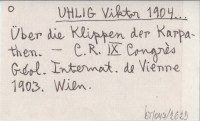 UHLIG Viktor 1904...
Über die Klippen der Karpa-
then. — C.R. IX Congrès
Géol. Internat. de Vienne
1903. Wien.